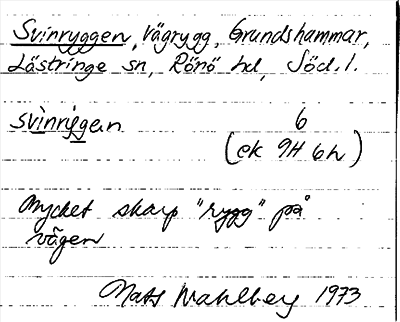 Svinryggen, Vägrygg, Grundshammar,
Lästringe sn, Rönö hd, Söd.l.
svìnrýgen
6
(ek 9H 6h)
Mycket skarp "rygg" på
vägen
Mats Wahlberg 1973